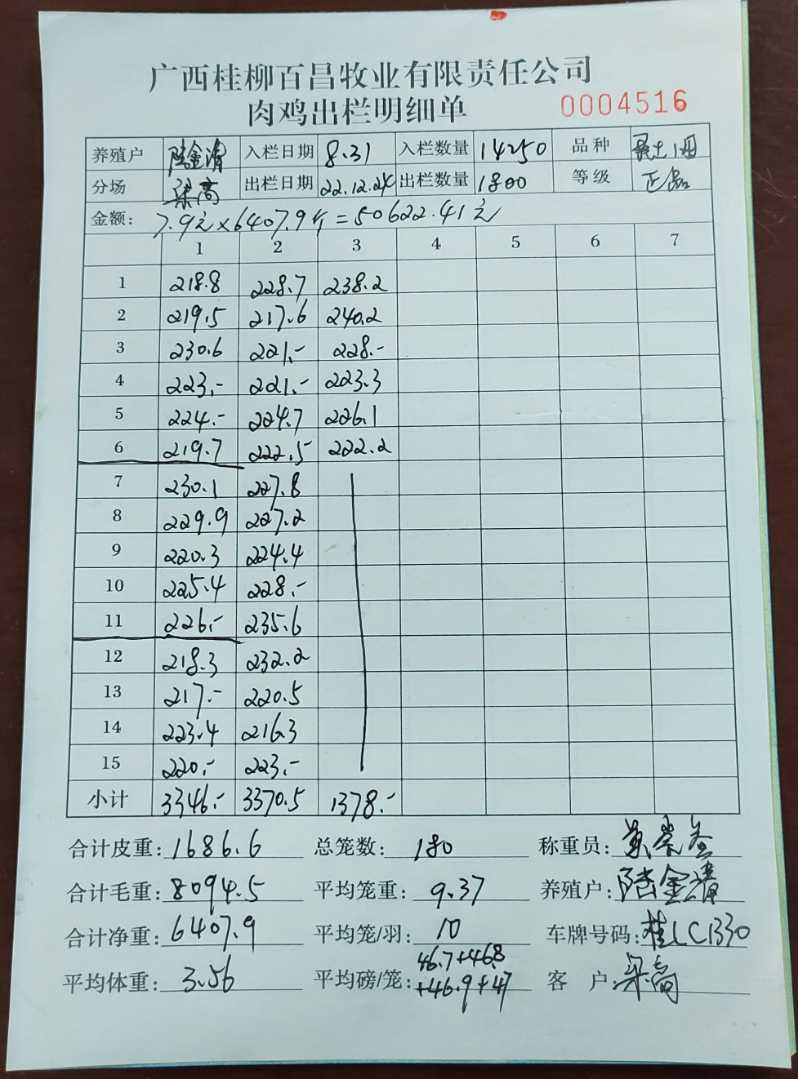 广西桂柳百昌牧业有限责任公司
肉鸡出栏明细单 0004516
养殖户 陆金清 入栏日期 8.31 入栏数量 14250 品种
分场 梁高 出栏日期 22.12.24 出栏数量 1800 等级 正品
金额: 7.9元×6407.9斤=50622.41元
1 2 3 4 5 6 7
1 218.8 228.7 238.2
2 219.5 217.6 240.2
3 230.6 221.- 228.-
4 223.- 221.- 223.3
5 224.- 224.7 226.1
6 219.7 222.5 222.2
7 230.1 227.8
8 229.9 227.2
9 220.3 224.4
10 225.4 228.-
11 226.- 235.6
12 218.3 232.2
13 217.- 220.5
14 223.4 216.3
15 220.- 223.-
小计 3346.- 3370.5 1378.-
合计皮重: 1686.6 总笼数: 180 称重员:
合计毛重: 8094.5 平均笼重: 9.37 养殖户: 陆金清
合计净重: 6407.9 平均笼/羽: 10 车牌号码: 桂LC1330
平均体重: 3.56 平均磅/笼: 46.7+46.8+46.9+47 客 户: 梁高